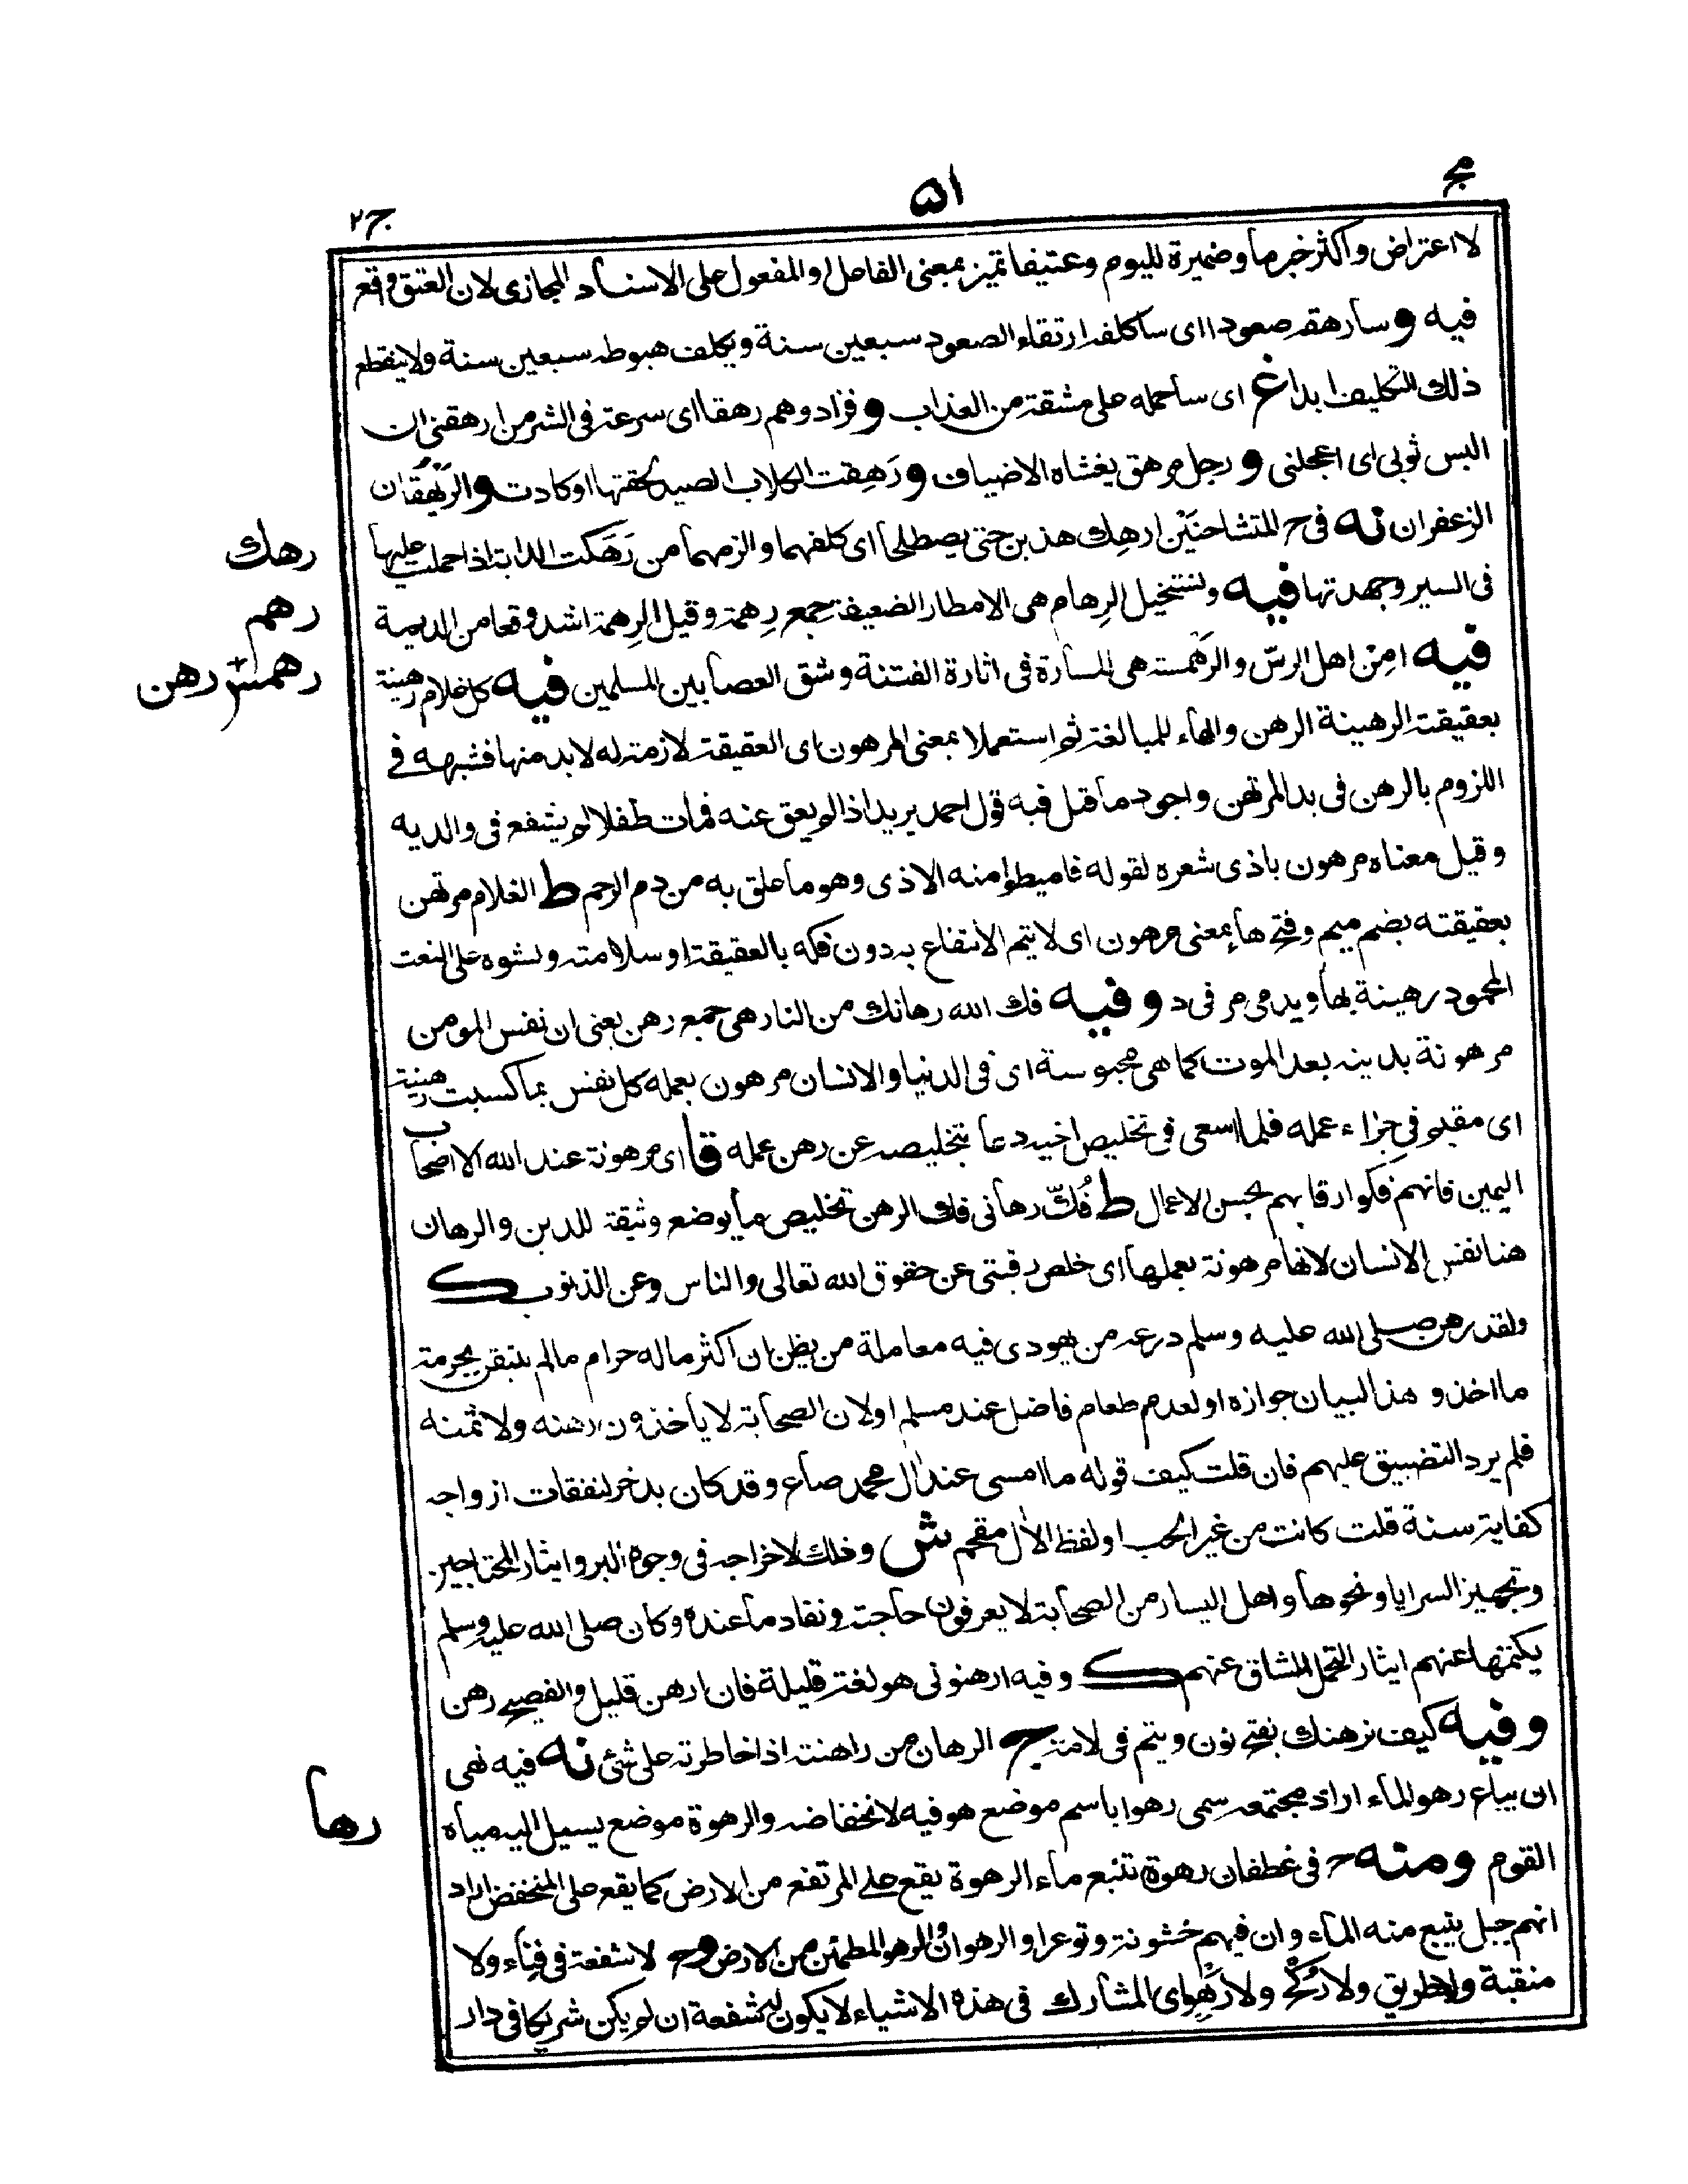 مج
٥١
ج٢
لا اعتراض واكثر خبر ما وضميرة لليوم وعتيقا تميز بمعنى الفاعل او المفعول على الاسناد المجازى لان العتق وقع
فيه و سارهقه صعودا اى ساكلفه ارتقاء الصعود سبعين سنة ويكلف هبوطه سبعين سنة ولا ينقطع
ذلك التكليف ابدا غ اى ساحمله على مشقة من العذاب و فزادوهم رهقا اى سرعة فى الشر من ارهقنى ان
البس ثوبى اى اعجلنى و رجل مرهق يغشاه الاضياف و رَهِقت الكلاب الصيد لحقتها او كادت و الرَيْهُقَان
الزعفران نه فى ح المتشاحنَيْن ارهِك هذين حتى يصطلحا اى كلفهما والزمهما من رَهَكت الدابة اذا حملت عليها
فى السير وجهدتها فيه ونستخيل الرِهام هى الامطار الضعيفة جمع رِهمة وقيل الرِهمة اشد وقعا من الديمة
فيه امِنْ اهل الرسّ والرَهْمسة هى المسارة فى اثارة الفتنة وشق العصا بين المسلمين فيه كل غلام رهينة
بعقيقته الرهينة الرهن والهاء للمبالغة ثم استعملا بمعنى المرهون اى العقيقة لازمة له لا بد منها فشبهه فى
اللزوم بالرهن فى يد المرتهن واجود ما قيل فيه قول احمد يريد اذا لم يعق عنه فمات طفلا لم يشفع فى والديه
وقيل معناه مرهون باذى شعره لقوله فاميطوا منه الاذى وهو ما علق به من دم الرحم ط الغلام مرتهن
بعقيقته بضم ميم وفتح هاء بمعنى مرهون اى لا يتم الانتفاع به دون فكه بالعقيقة او سلامته ونشوه على النعت
المحمود رهينة بها ويدمى مر فى د و فيه فك الله رهانك من النار هى جمع رهن يعنى ان نفس المومن
مرهونة بدينه بعد الموت كما هى محبوسة اى فى الدنيا والانسان مرهون بعمله كل نفس بما كسبت رهينة
اى مقيم فى جزاء عمله فلما سعى فى تخليص اخيه دعا بتخليصه عن رهن عمله قا اى مرهونة عند الله الا اصحاب
اليمين فانهم فكوا رقابهم بحسن الاعمال ط فُكّ رهانى فك الرهن تخليص ما يوضع وثيقة للدين والرهان
هنا نفس الانسان لانها مرهونة بعملها اى خلص رقبتى عن حقوق الله تعالى والناس وعن الذنوب ك
ولقد رهن صلى الله عليه وسلم درعه من يهودى فيه معاملة من يظن ان اكثر ماله حرام مالم يتيقن بحرمة
ما اخذ و هذا لبيان جوازه او لعدم طعام فاضل عند مسلم او لان الصحابة لا ياخذون رهنه ولا ثمنه
فلم يرد التضييق عليهم فان قلت كيف قوله ما امسى عند ال محمد صاع وقد كان يدخر لنفقات ازواجه
كفاية سنة قلت كانت من غير الحب او لفظ الأل مقحم ش وذلك لاخراجه فى وجوه البر وايثار المحتاجين
وتجهيز السرايا ونحوها واهل اليسار من الصحابة لا يعرفون حاجته ونفاد ما عنده وكان صلى الله عليه وسلم
يكتمها عنهم ايثار التحمل المشاق عنهم ك وفيه ارهنونى هو لغة قليلة فان ارهن قليل والفصيح رهن
وفيه كيف نرهنك بفتح نون ويتم فى لامة ج الرهان من راهنته اذا خاطرته على شئ نه فيه نهى
ان يباع رهو الماء اراد مجتمعه سمى رهوا باسم موضع هو فيه لانخفاضه والرهوة موضع يسيل اليه مياه
القوم ومنه ح فى غطفان رهوة تنبع ماء الرهوة يقع على المرتفع من الارض كما يقع على المنخفض اراد
انهم جبل ينبع منه الماء وان فيهم خشونة وتوعرا والرهوان والرهو المطمئن من الارض وح لا شفعة فى فِناء ولا
منقبة ولا طريق ولا رُكْح ولا رَهْو اى المشارك فى هذه الاشياء لا يكون له شفعة ان لم يكن شريكا فى دار
رهك
رهم
رهمس رهن
رها